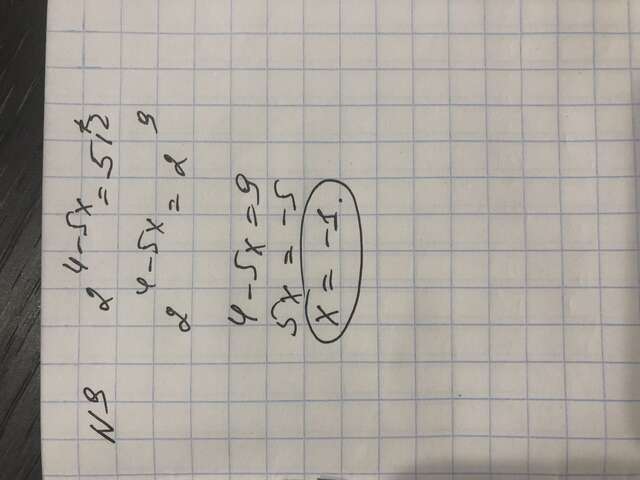 N9 2^{4-5x} = 512
2^{4-5x} = 2^9
4-5x = 9
5x = -5
x = -1.